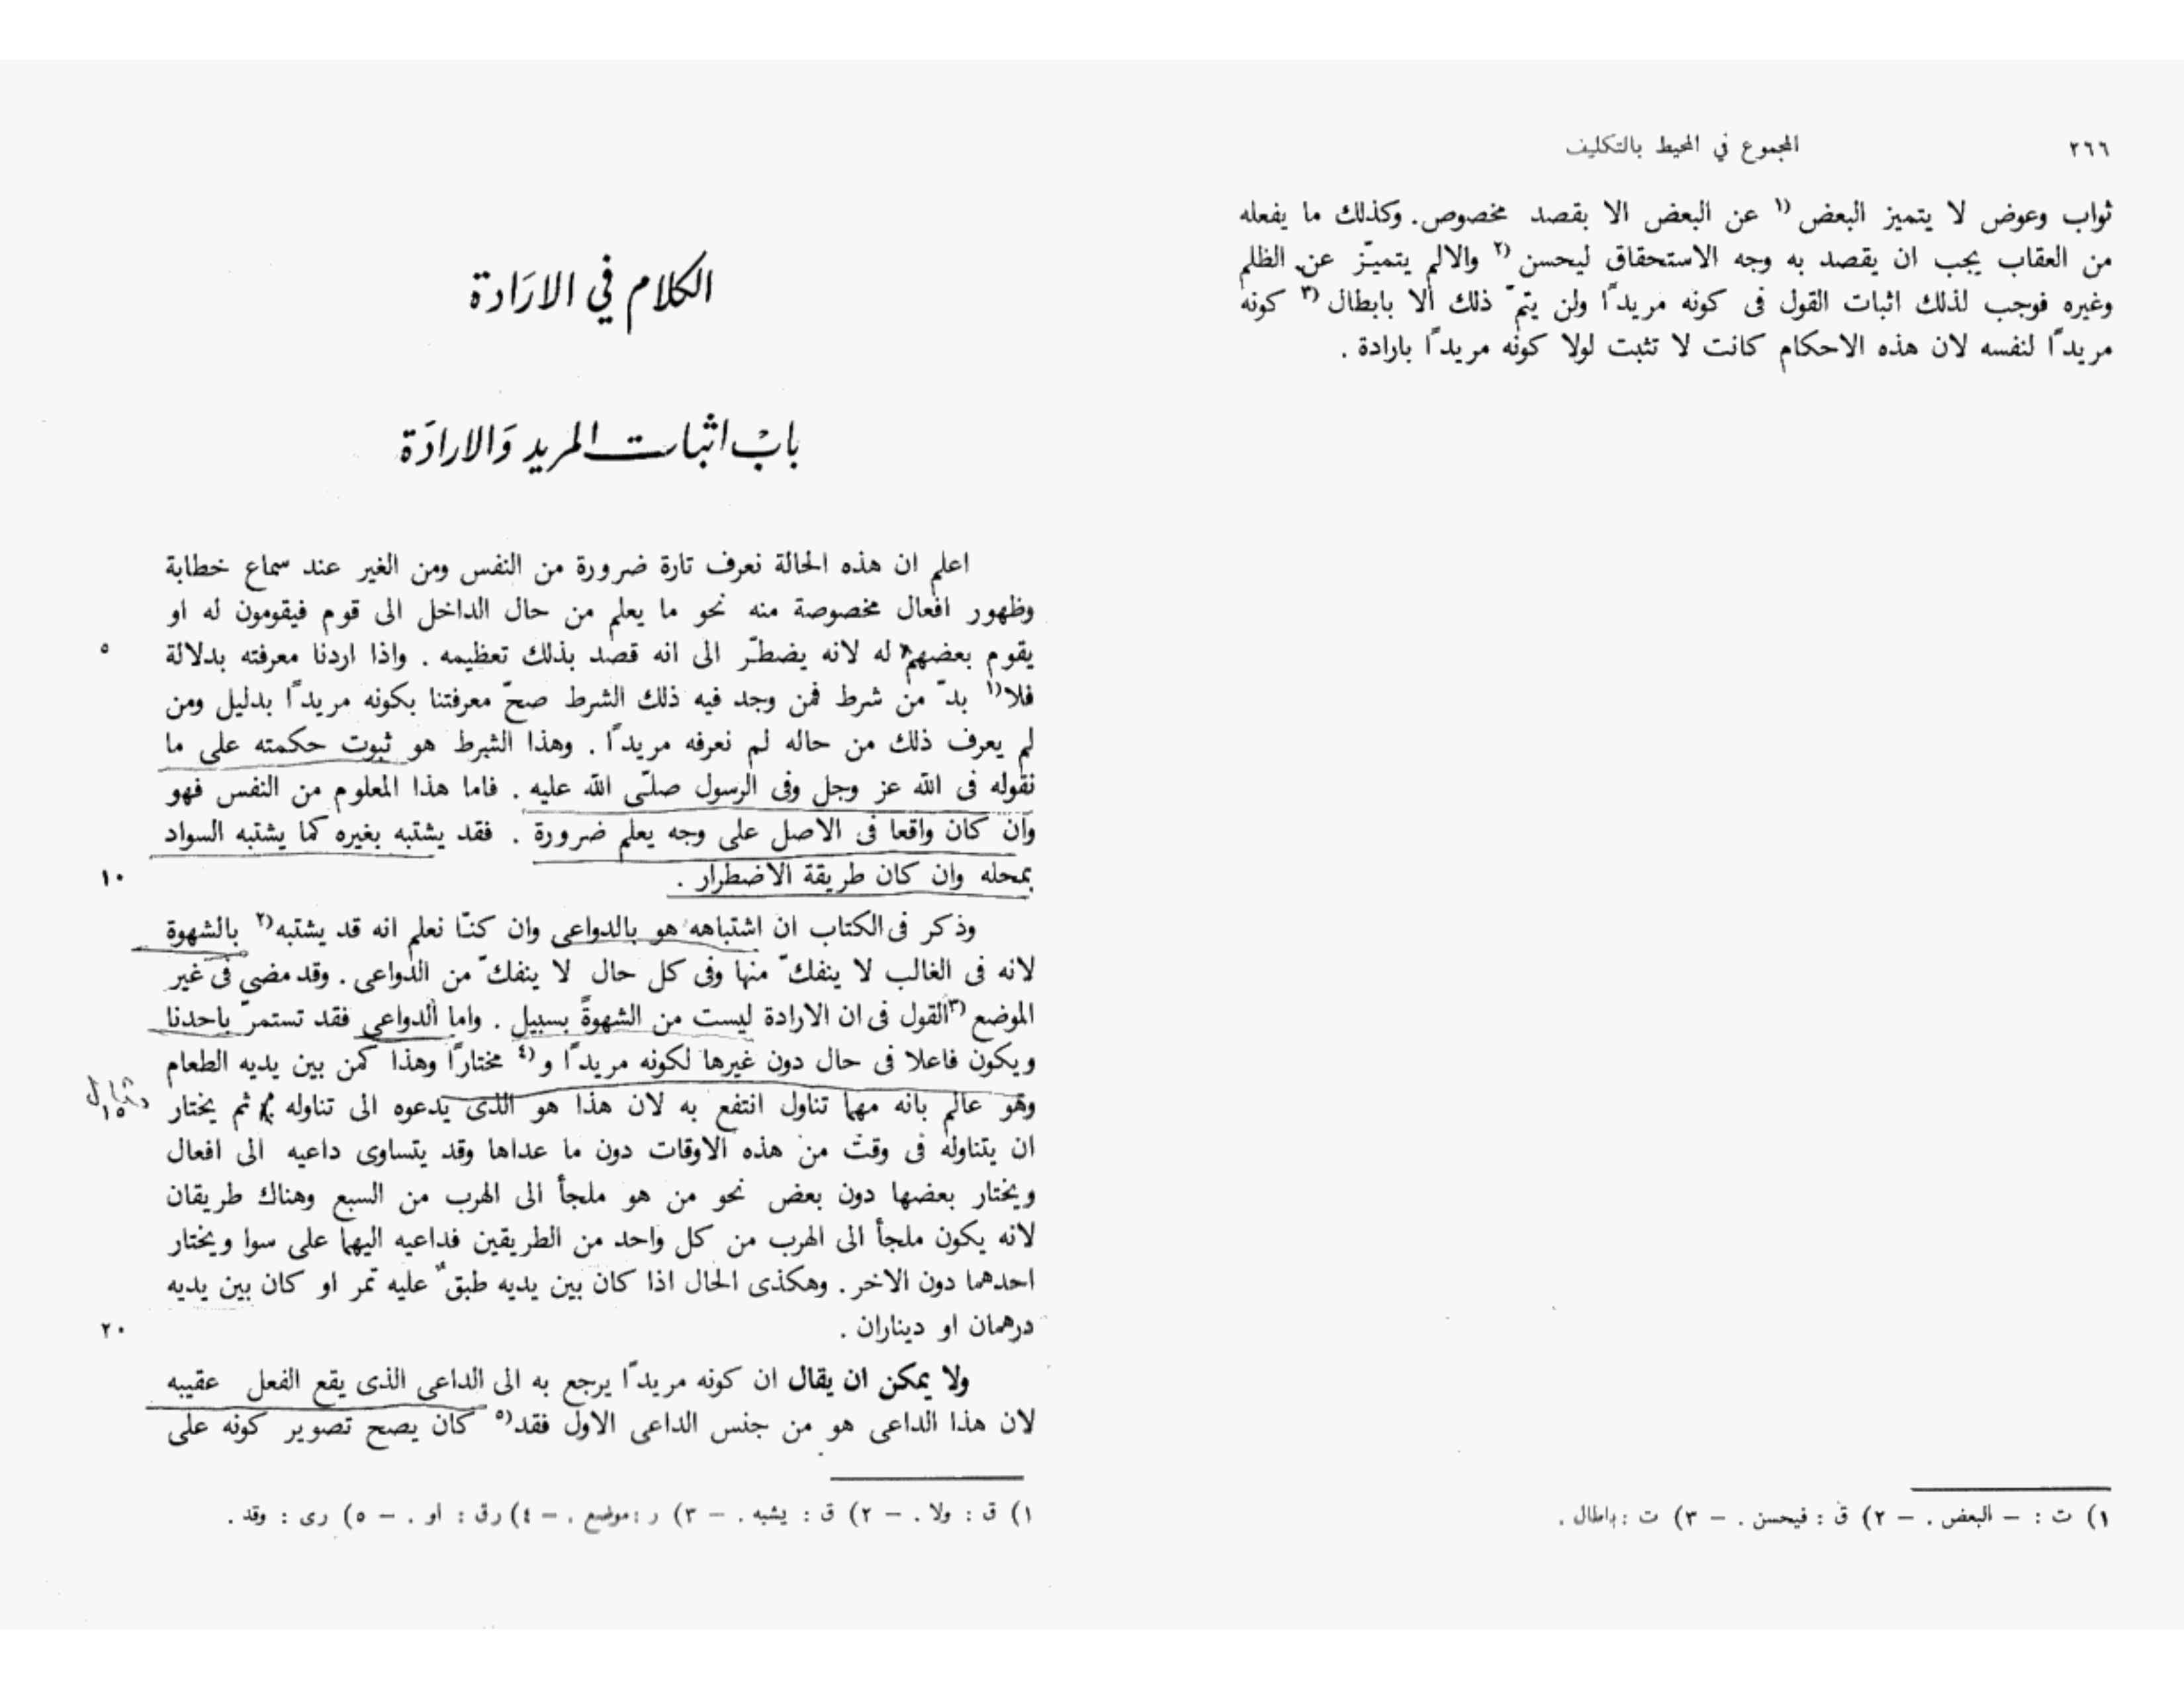 ٢٦٦
المجموع في المحيط بالتكليف
ثواب وعوض لا يتميز البعض ١) عن البعض الا بقصد مخصوص. وكذلك ما يفعله
من العقاب يجب ان يقصد به وجه الاستحقاق ليحسن ٢) والالم يتميّز عن الظلم
وغيره فوجب لذلك اثبات القول فى كونه مريدًا ولن يتمّ ذلك ألا بابطال ٣) كونه
مريدًا لنفسه لان هذه الاحكام كانت لا تثبت لولا كونه مريدًا بارادة .
١) ت : – البعض . – ٢) ق : فيحسن . – ٣) ت : باطال .
الكلام في الارَادة
بابْ اثبات المريد وَالارادَة
اعلم ان هذه الحالة نعرف تارة ضرورة من النفس ومن الغير عند سماع خطابة
وظهور افعال مخصوصة منه نحو ما يعلم من حال الداخل الى قوم فيقومون له او
يقوم بعضهم له لانه يضطرّ الى انه قصد بذلك تعظيمه . واذا اردنا معرفته بدلالة
٥
فلا١) بدّ من شرط فمن وجد فيه ذلك الشرط صحّ معرفتنا بكونه مريدًا بدليل ومن
لم يعرف ذلك من حاله لم نعرفه مريدًا . وهذا الشرط هو ثبوت حكمته على ما
نقوله فى الله عز وجل وفى الرسول صلّى الله عليه . فاما هذا المعلوم من النفس فهو
وان كان واقعا فى الاصل على وجه يعلم ضرورة . فقد يشتبه بغيره كما يشتبه السواد
بمحله وان كان طريقة الاضطرار .
١٠
وذكر فى الكتاب ان اشتباهه هو بالدواعى وان كنّا نعلم انه قد يشتبه٢) بالشهوة
لانه فى الغالب لا ينفكّ منها وفى كل حال لا ينفكّ من الدواعى . وقد مضى فى غير
الموضع ٣) القول فى ان الارادة ليست من الشهوة بسبيل . واما الدواعى فقد تستمرّ باحدنا
ويكون فاعلا فى حال دون غيرها لكونه مريدًا و٤) مختارًا وهذا كمن بين يديه الطعام
وهو عالم بانه مهما تناول انتفع به لان هذا هو الذى يدعوه الى تناوله ثم يختار
١٥
ان يتناوله فى وقت من هذه الاوقات دون ما عداها وقد يتساوى داعيه الى افعال
ويختار بعضها دون بعض نحو من هو ملجأ الى الهرب من السبع وهناك طريقان
لانه يكون ملجأ الى الهرب من كل واحد من الطريقين فداعيه اليهما على سوا ويختار
احدهما دون الاخر . وهكذى الحال اذا كان بين يديه طبقٌ عليه تمر او كان بين يديه
درهمان او ديناران .
٢٠
ولا يمكن ان يقال ان كونه مريدًا يرجع به الى الداعى الذى يقع الفعل عقيبه
لان هذا الداعى هو من جنس الداعى الاول فقد٥) كان يصح تصوير كونه على
١) ق : ولا . – ٢) ق : يشبه . – ٣) ر : موضع . – ٤) رق : او . – ٥) رى : وقد .